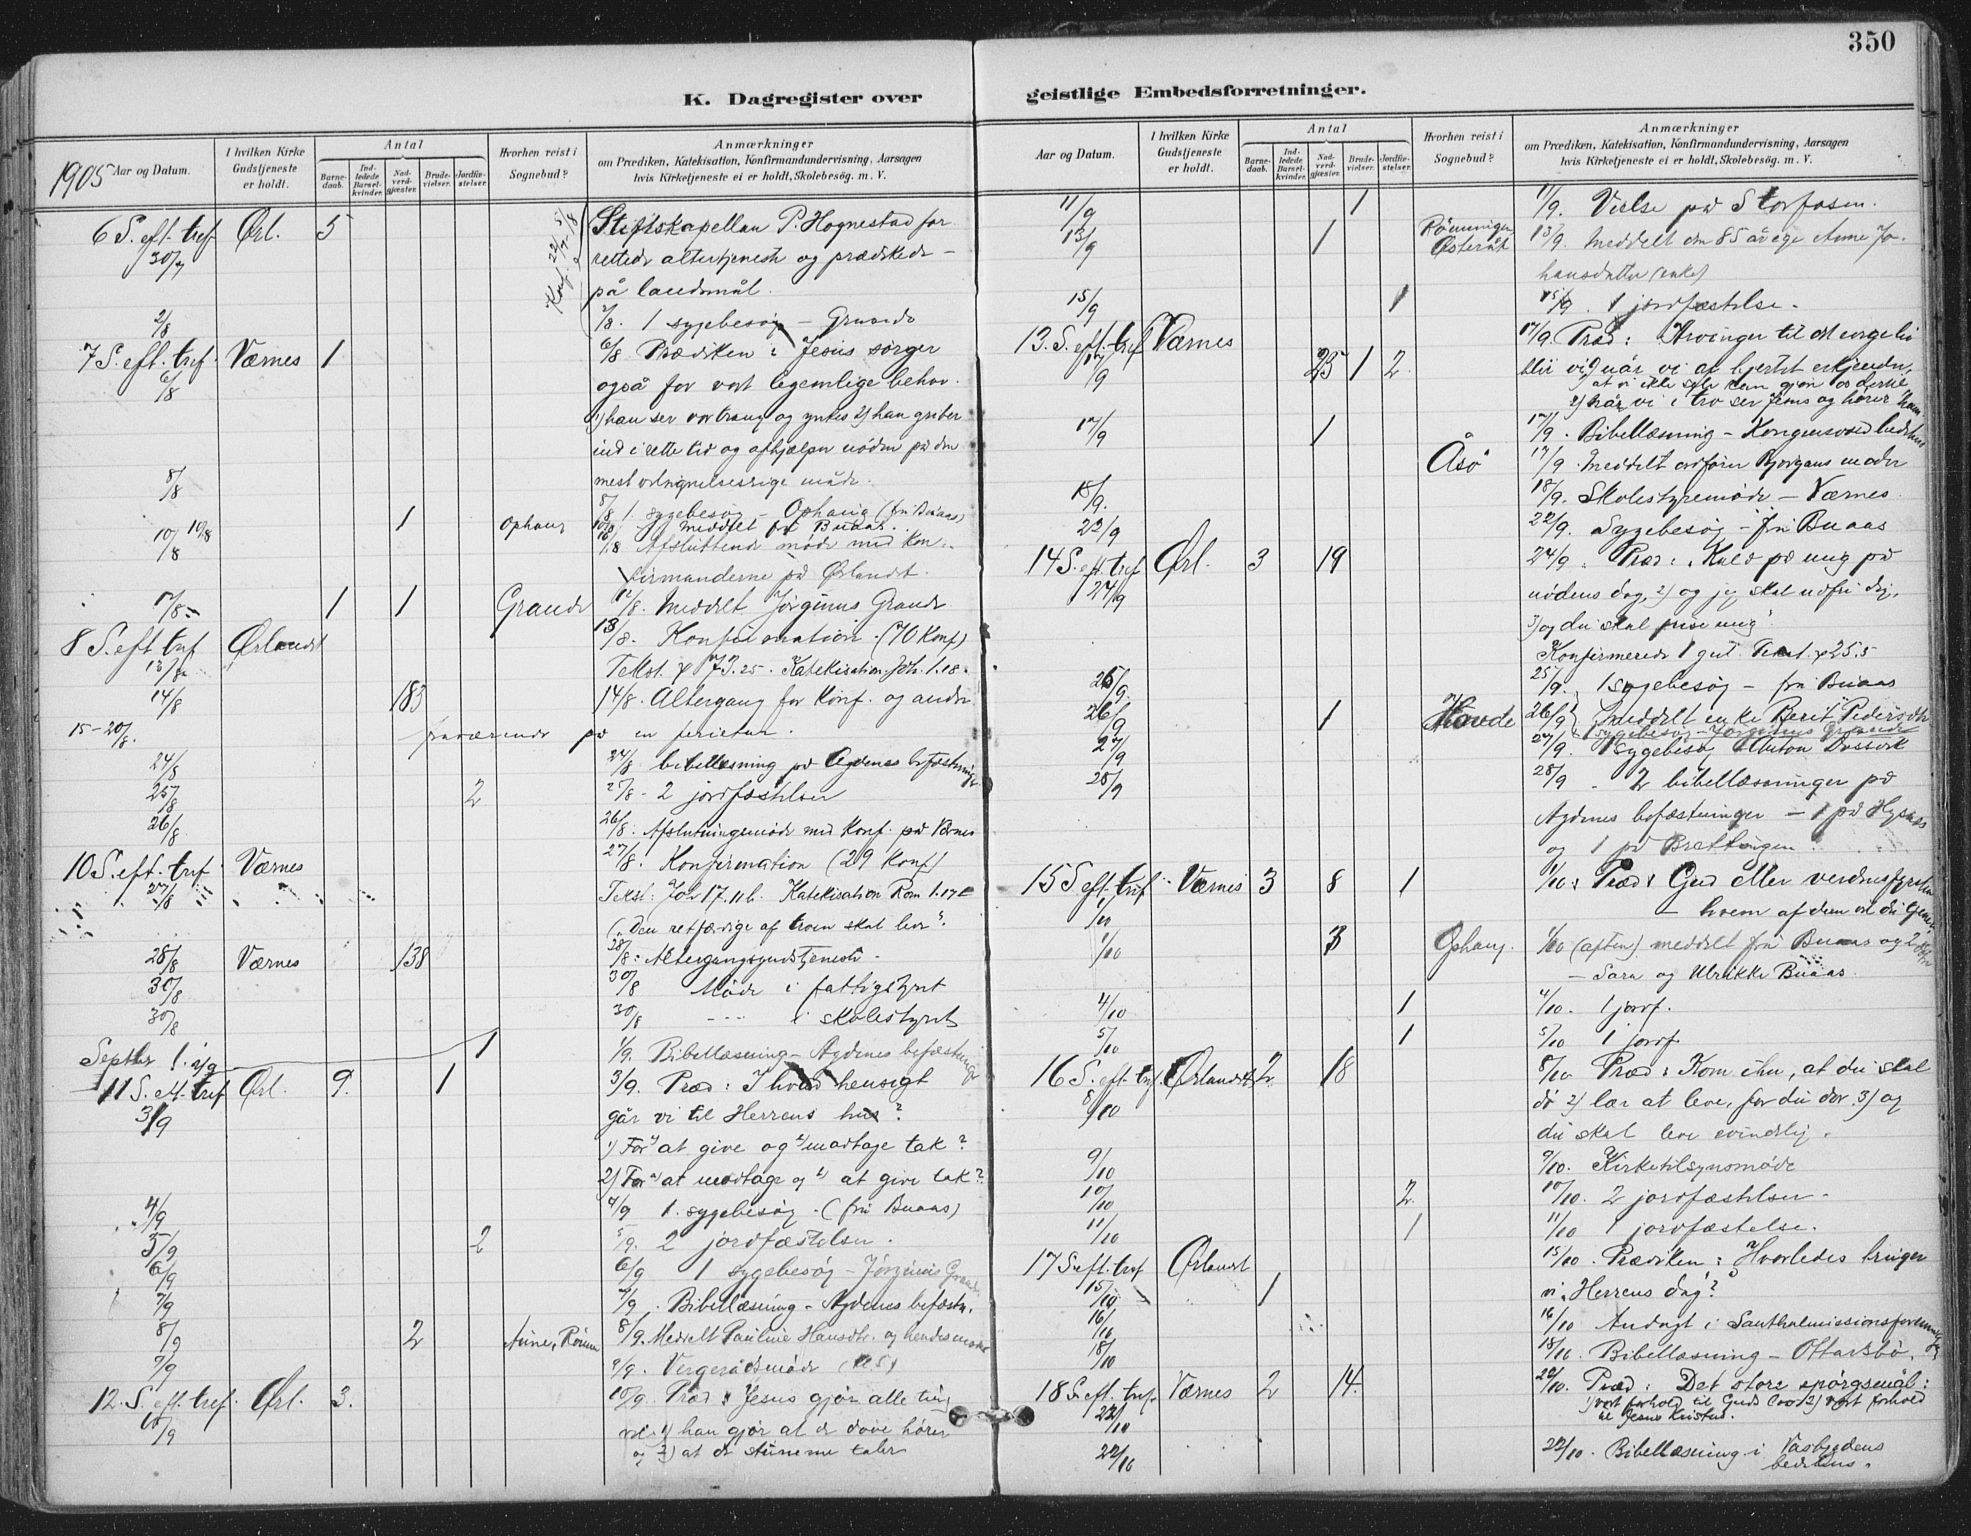 350
K. Dagregister over
geistlige Embedsforretninger.
1905 Aar og Datum.
I hvilken Kirke Gudstjeneste er holdt.
Antal
Barnedaab.
Indledede Barselkvinder.
Nadverdgjæster.
Brudevielser.
Jordfæstelser.
Hvorhen reist i Sognebud?
Anmærkninger
om Prædiken, Katekisation, Konfirmandundervisning, Aarsagen
hvis Kirketjeneste ei er holdt, Skolebesøg. m. V.
6 S. eft. tref. Ørl. 5 Stiftskapellan P. Hognestad for
30/7 rettede altertjeneste og prædikede
på landsmål.
2/8 2/8. 1 sygebesøg – Grande
7 S. eft. tref. Værnes 1 6/8 Prædiken: Jesus sørger
6/8 også for vort legemlige behov.
1) han ser vor trang og ynkes 2) han griber
ind i rette tid og afhjælper nøden på den
mest velsignelsesrige måde.
8/8 8/8 1 sygebesøg – Ophaug (fru Buaas)
10/8 1 Ophaug 10/8 Meddelt fr Buaas.
10/8 10/8 Afsluttende møde med kon-
firmanderne på Ørlandet.
1 1 Grande 12/8. Meddelt Jørginus Grande
8 S. eft. tref Ørlandet 13/8. Konfirmation. (70 Konf)
13/8 Tekst. ψ 73.25. Katekisation Joh. 1.18.
14/8 183 14/8. Altergang for Konf. og andre
15–20/8. fraværende på en ferietur.
24/8 24/8 bibellæsning på Agdenes befæstninger
25/8 2 25/8 – 2 jordfæstelser
26/8 26/8: Afslutningsmøde med Konf. på Værnes
10 S. eft. tref. Værnes 27/8. Konfirmation (29 Konf)
27/8 Tekst: Joh 17.11b. Katekisation Rom 1.17
(„Den retfærdige af troen skal leve".
28/8 Værnes 138 28/8: Altergangsgudstjeneste.
30/8 30/8 Møde i fattigstyret
30/8 30/8 --- i skolestyret
Septbr 1. 1/9 1 1/9. Bibellæsning – Agdenes befæstninger
11 S. eft. tref Ørl. 9. 1 3/9. Præd: I hvad hensigt
3/9 går vi til Herrens hus?
1) For at give og modtage tak?
2) For at modtage og at give tak?
4/9 4/9 1 sygebesøg. (fru Buaas)
5/9 2 5/9. 2 jordfæstelser.
6/9 6/9 1 sygebesøg – Jørginus Grande
7/9 7/9. Bibellæsning – Agdenes befæstn.
8/9 2 8/9. Meddelt Pauline Hansdtr. og hendes
9/9 9/9. Vergerådsmøde
12. S. eft. tref. Ørl. 3. 10/9. Præd: Jesus gjør alle ting
10/9 vel: 1) han gjør at de døve hører
og 2) at de stumme taler
Aar og Datum.
I hvilken Kirke Gudstjeneste er holdt.
Antal
Barnedaab.
Indledede Barselkvinder.
Nadverdgjæster.
Brudevielser.
Jordfæstelser.
Hvorhen reist i Sognebud?
Anmærkninger
om Prædiken, Katekisation, Konfirmandundervisning, Aarsagen
hvis Kirketjeneste ei er holdt, Skolebesøg. m. V.
11/9 1 11/9. Vielse på Storfosen.
13/9 1 Østeråt 13/9. Meddelt den 85 årige Anne Jo-
hansdatter (enke)
15/9 1 15/9. 1 jordfæstelse.
13. S. eft. tref Værnes 17/9. Præd: Arvinger til det evige liv
17/9 25 1 2 blir vi når vi af hjertet erkjender,
2) når vi i tro ser Jesus og hører ham
17/9 1 17/9. Bibellæsning – Kongensvold bedehus
Åsø 17/9. Meddelt ordfører Bjørgans moder
18/9. 18/9. Skolestyremøde – Værnes.
22/9 22/9. Sygebesøg – fru Buaas
14 S. eft. tref Ørl. 3 19 24/9. Præd: „Kald på mig på
24/9 nødens dag, 2) og jeg skal udfri dig,
3) og du skal prise mig".
Konfirmerede 1 gut. Tekst. ψ 25.5
25/9. 25/9. 1 sygebesøg – fru Buaas
26/9 1 Hovde 26/9 meddelt enke Berit Pedersdtr
sygebesøg – Jørginus Grande
27/9 27/9. 1 sygebesø Anton Dossvik
28/9 28/9. 2 bibellæsninger på
Agdenes befæstninger – 1 på Hysnes
og 1 på Brettingen
15 S. eft. tref. Værnes 3 8 1 1/10: Præd: Gud eller verdensfyrsten
1/10 – hvem af dem vil du tjene?
1/10 3 Ophaug. 1/10 (aften) meddelt fru Buaas og 2 døtre
– Sara og Ulrikke Buaas.
4/10 1 4/10. 1 jordf.
5/10 1 5/10 1 jordf.
16 S. eft. tref. Ørlandet 2 18 8/10 Præd: Kom ihu, at du skal
8/10 dø 2) lær at leve, før du dør. 3) og
du skal leve evindelig.
9/10 9/10. Kirketilsynsmøde
10/10 2 10/10. 2 jordfæstelser.
11/10 1 11/10 1 jordfæstelse.
17 S eft. tref Ørlandet 15/10. Prædiken: Hvorledes bruger
15/10 1 vi Herrens dag?
16/10 16/10 Andagt i Santhalmissionsforening
18/10 18/10. Bibellæsning – Ottersbø.
18 S. eft. tref. Værnes 2 14. 22/10. Præd: Det store spørgsmål:
22/10 1) vort forhold til Guds lov 2) vort forhold
til Jesus Kristus.
22/10 22/10. Bibellæsning i
bedehus.